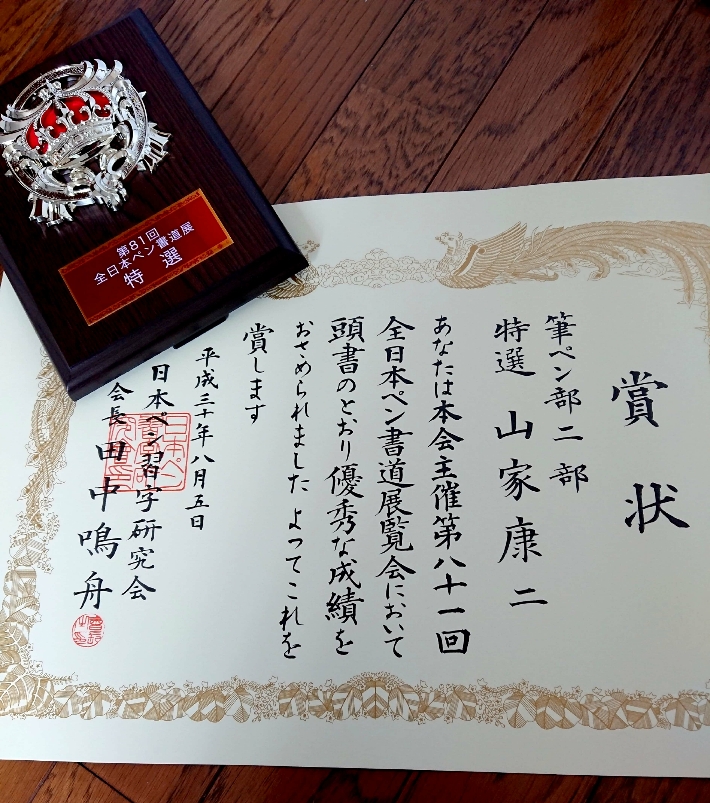 第81回
全日本ペン書道展
特選
賞状
筆ペン部二部
特選 山家康二
あなたは本会主催第八十一回
全日本ペン書道展覧会において
頭書のとおり優秀な成績を
おさめられました よつてこれを
賞します
平成三十年八月五日
日本ペン習字研究会
会長 田中鳴舟